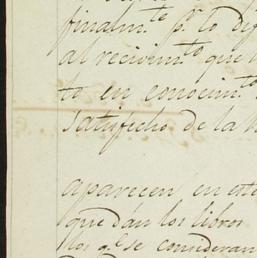 finalm.to p.r lo dif
al recivim.to que l
to en conocim.to
satisfecho de la
aparecen en este
que dan los libros
los q.e se consideran